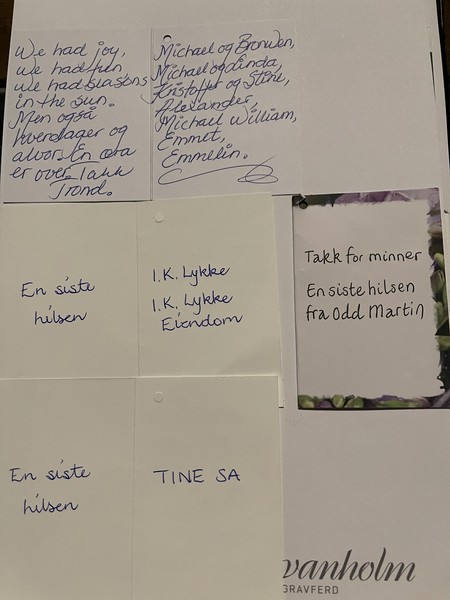 We had joy,
we had fun
we had seasons
in the sun.
Men også
hverdager og
alvor. En æra
er over. Takk
Trond.
Michael og Bronwen,
Michael og Linda,
Kristoffer og Stine,
Alexander,
Michael William,
Emmet,
Emmelin.
En siste
hilsen
I.K. Lykke
I.K. Lykke
Eiendom
Takk for minner
En siste hilsen
fra Odd Martin
En siste
hilsen
TINE SA
vanholm
GRAVFERD